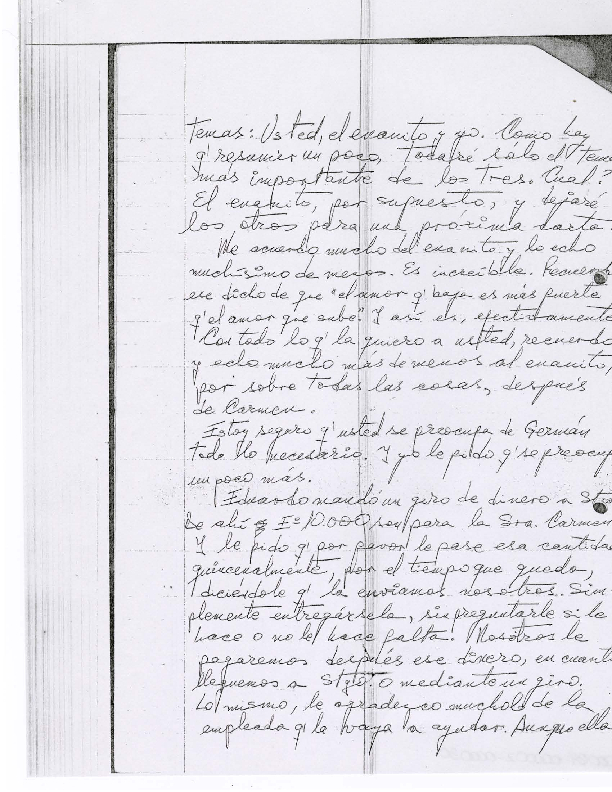 Temas: Usted, el enanito y yo. Como hay
q' resumir un poco, tocaré sólo el tema
más importante de los tres. Cual?
El enanito, por supuesto, y dejaré
los otros para una próxima carta.
Me acuerdo mucho del enanito y lo echo
muchísimo de menos. Es increíble. Recuerdo
ese dicho de que "el amor q' baja es más fuerte
q' el amor que sube". Y así es, efectivamente
Con todo lo q' la quiero a usted, recuerdo
y echo mucho más de menos al enanito,
por sobre todas las cosas, después
de Carmen.
Estoy seguro q' usted se preocupa de Germán
todo lo necesario. Y yo le pido q' se preocup
un poco más.
Eduardo mandó un giro de dinero a Stgo
De ahí Eº 10.000 son para la Sra. Carmen
Y le pido q' por favor le pase esa cantidad
quincenalmente, por el tiempo que queda,
diciéndole q' la enviamos nosotros. Sim
plemente entregársela, sin preguntarle si le
hace o no le hace falta. Nosotros le
pagaremos después ese dinero, en cuanto
lleguemos a Stgo. o mediante un giro.
Lo mismo, le agradezco mucho lo de la
empleada q' la vaya a ayudar. Aunque ella